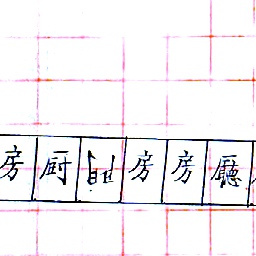 房厨房房廳